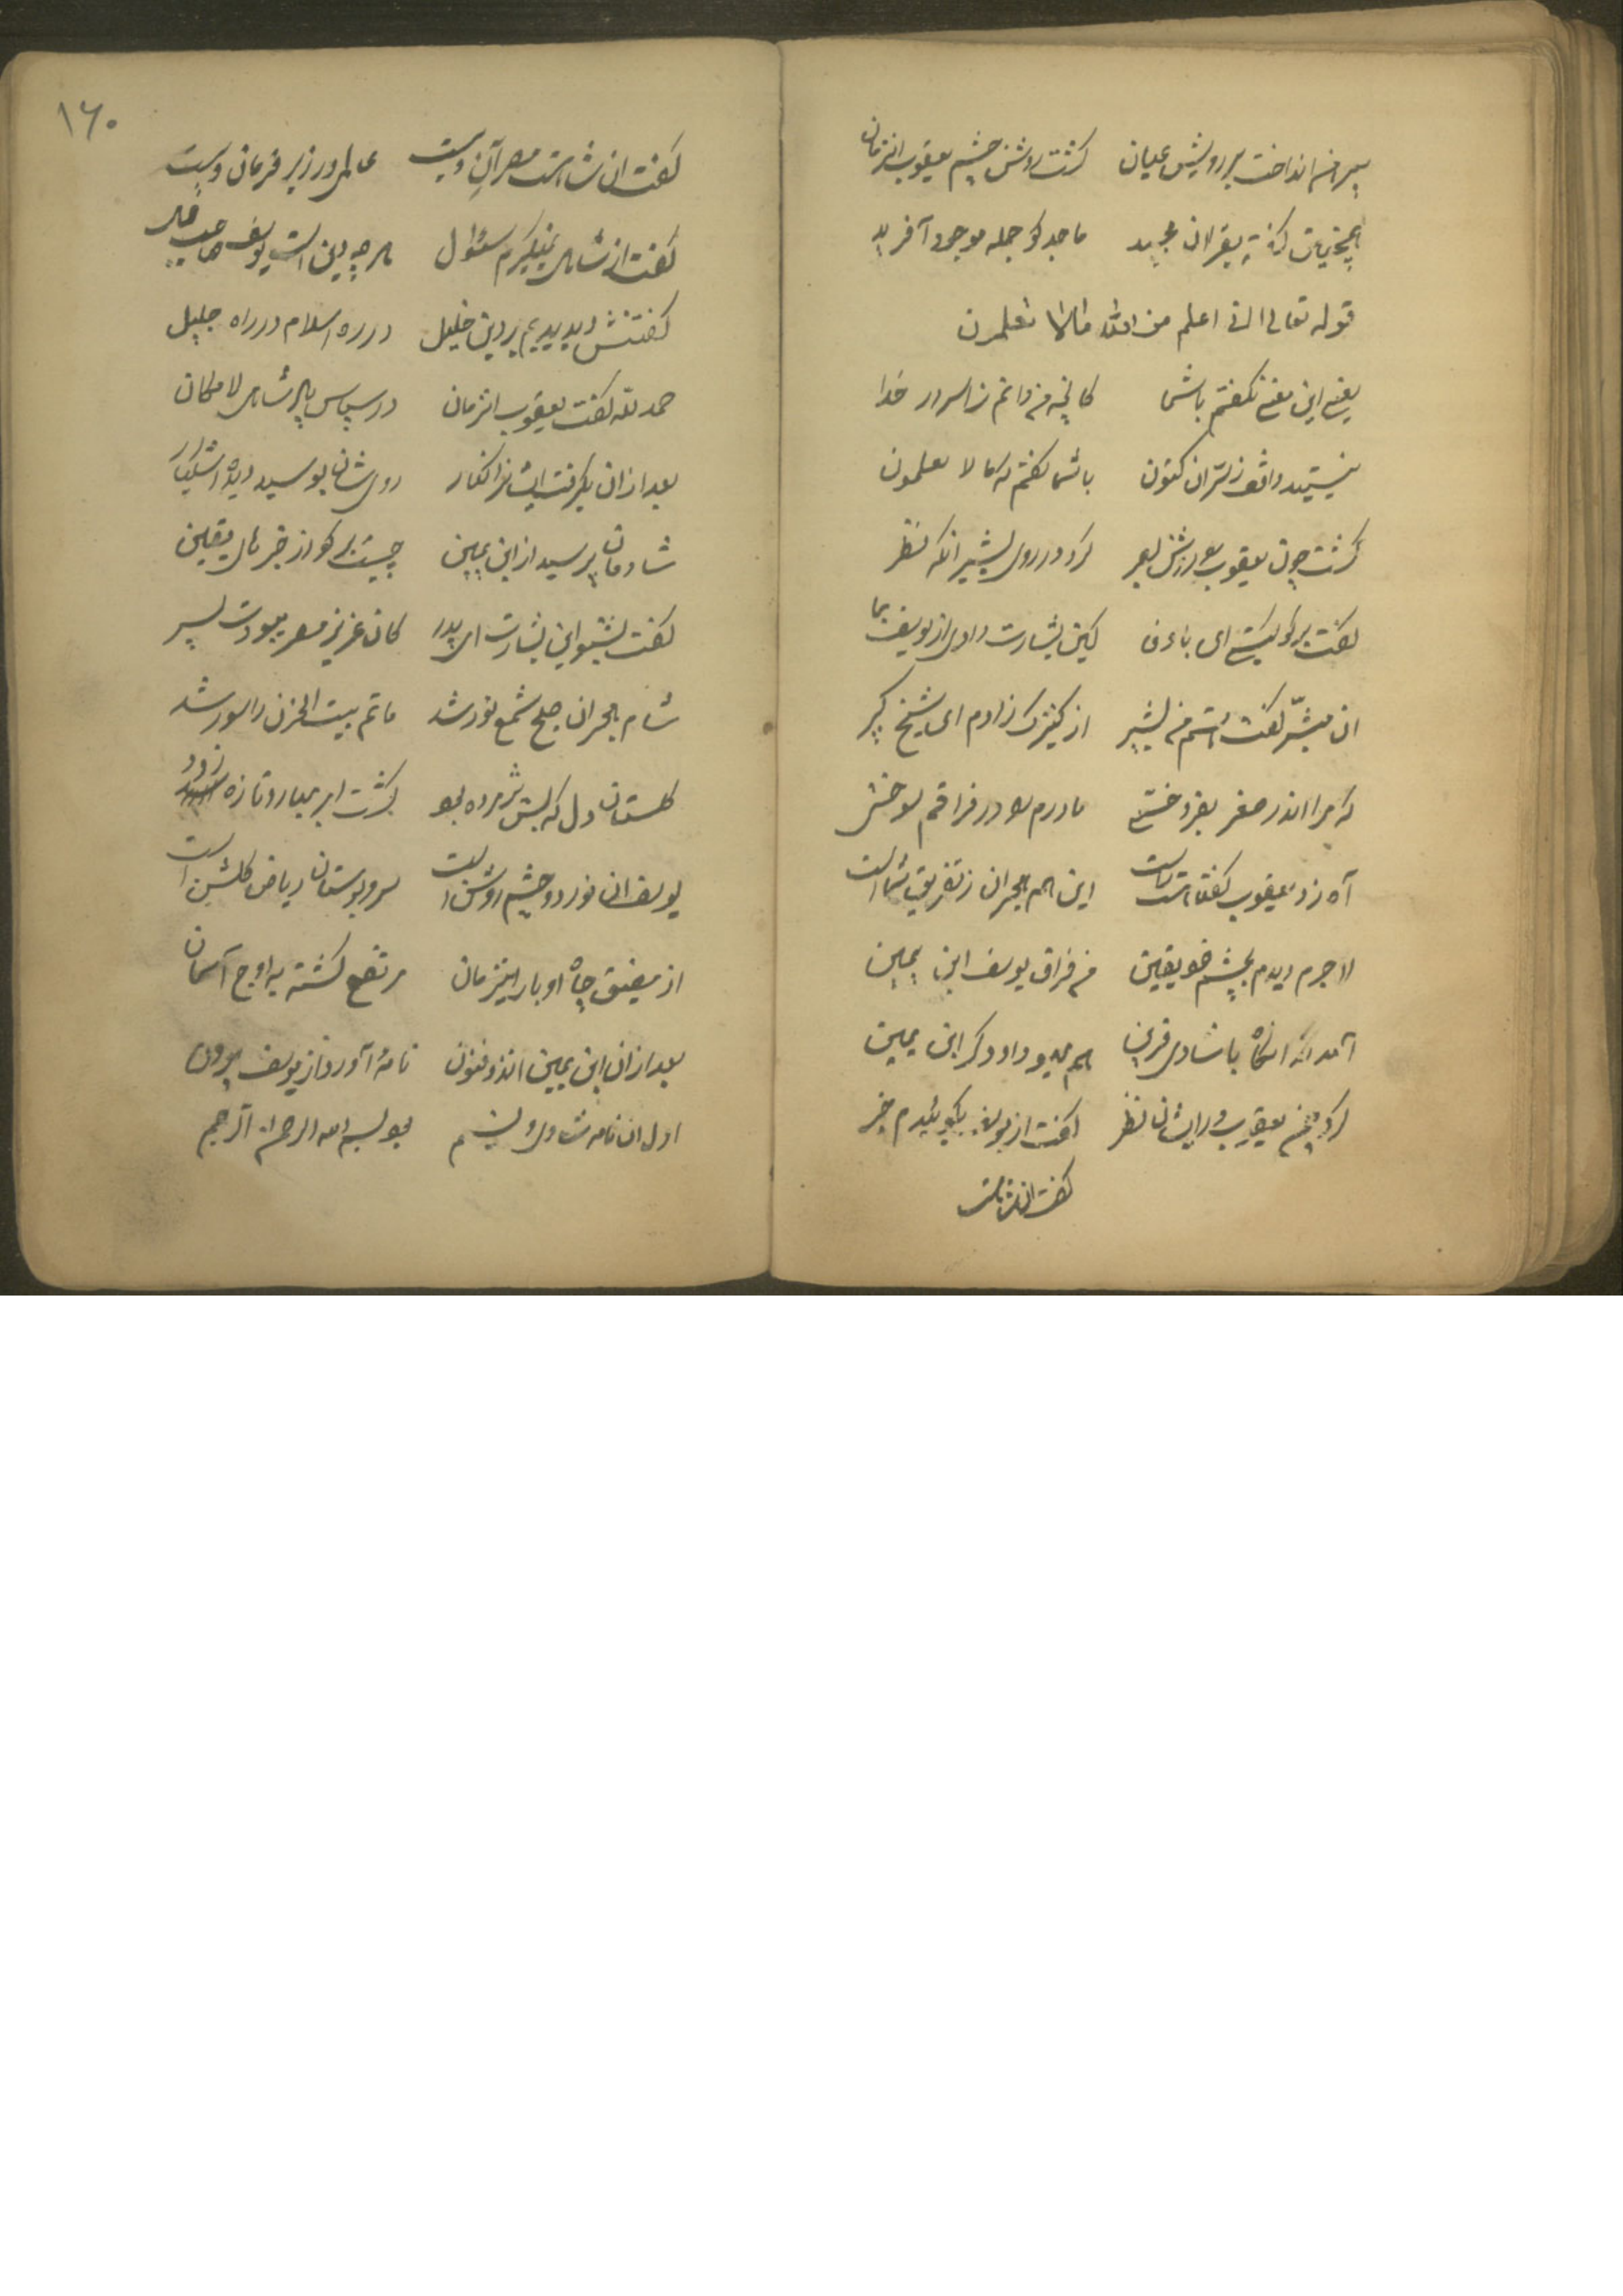 پیرهن انداخت بر رویش عیان گشت روشن چشم یعقوب انزمان
همچنین گفته بقران مجید ماجد کو جمله موجود آفرید
قوله تعالی انی اعلم من الله مالا تعلمون
یعنی این معنی نگفتم با شما کانچه من دانم ز اسرار خدا
نیستید واقف ز سر ان کنون با شما گفتم که ما لا تعلمون
گشت چون یعقوب را روشن بصر کرد در روی بشیر انگه نظر
گفت بر کو کیستی ای با وفا کین بشارت دادی از یوسف بما
ان مبشر گفت هستم من بشیر از کنیزک زادم ای شیخ کبیر
که مرا اندر صغر بفروختی مادرم را در فراقم سوختی
آه زد یعقوب گفتا راست است این هم هجران ز تفریق شما است
لاجرم دیدم بچشم خود یقین من فراق یوسف ابن یمین
آمد انگه با شادی قرین هم یهودا و دگر ابن یمین
کرد چشم یعقوب در ایشان نظر گفت از یوسف بگوئیدم خبر
گفت ان شاهست
۱۶۰
گفت ان شاهست مصر آن ویست عالمی در زیر فرمان ویست
گفت از شاهی نمیکرم سئوال بر چه دین است یوسف صاحب جمال
گفتنش دیدیم بر دین خلیل در ره اسلام در راه جلیل
حمد لله گفت یعقوب انزمان در سپاس پادشاه لا مکان
بعد ازان بگرفت ایشانرا کنار روی شان بوسید دیده اشکبار
شادمان پرسید از ابن یمین چیست بر کو از خبرهای یقین
گفت بشنو این بشارت ای پدر کان عزیز مصر میبودت پسر
شام هجران صبح شمع نور شد ماتم بیت الحزن را سور شد
گلستان دل که بس پژمرده بود گشت ابر بهار و تازه زود
یوسف ان نور دو چشم روشن است سرو بوستان ریاض گلشن است
از مضیق چاه او بار اینزمان مرتفع گشته به اوج آسمان
بعد ازان ابن یمین اندوفنون نامهٔ آورد از یوسف برون
اول ان نامه بود بسم الله الرحمن الرحیم